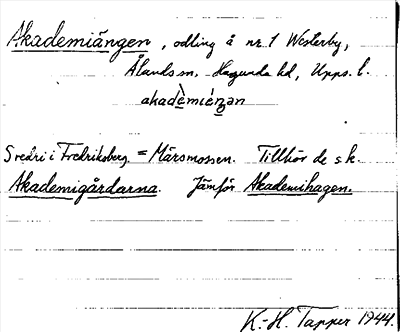 Akademiängen, odling å nr. 1 Westerby,
Ålands sn. Hagunda hd, Upps. l.
akadèmiéŋən
i Fredriksberg. = Märsmossen. Tillhör de s.k.
Akademigårdarna. Jämför Akademihagen.
K.-H. Tapper 1944.